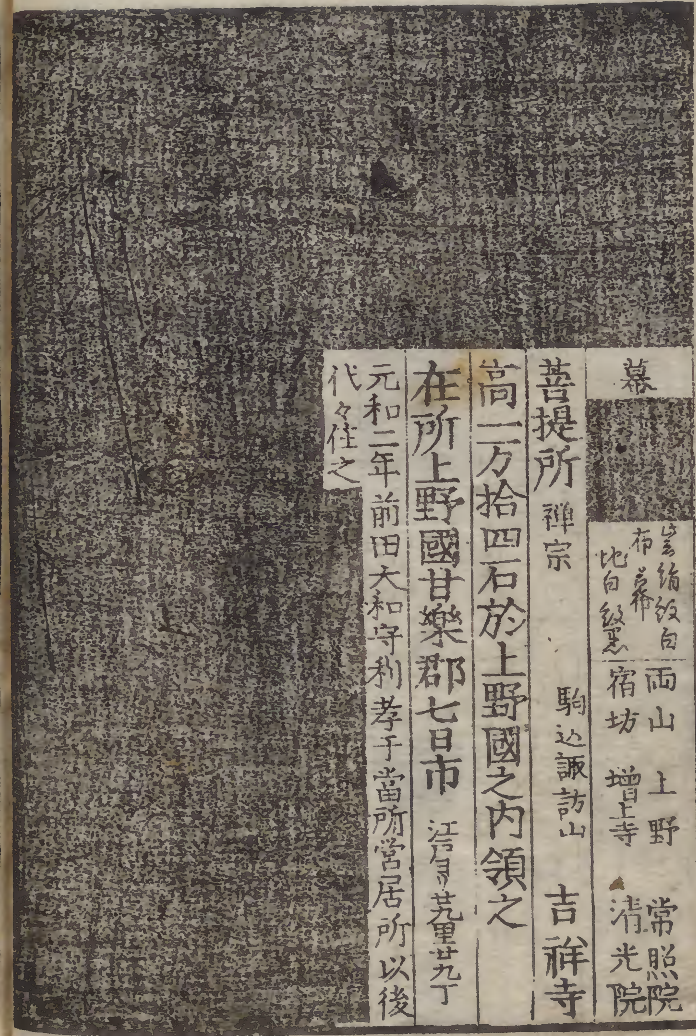 幕
紋白
布幕
地白紋黒
両山 上野 常照院
宿坊 増上寺 清光院
菩提所 禅宗 駒込諏訪山 吉祥寺
高一万拾四石於上野國之内領之
在所上野國甘樂郡七日市 江戸ヨリ廿九里廿九丁
元和二年前田大和守利孝于當所営居所以後
代々住之